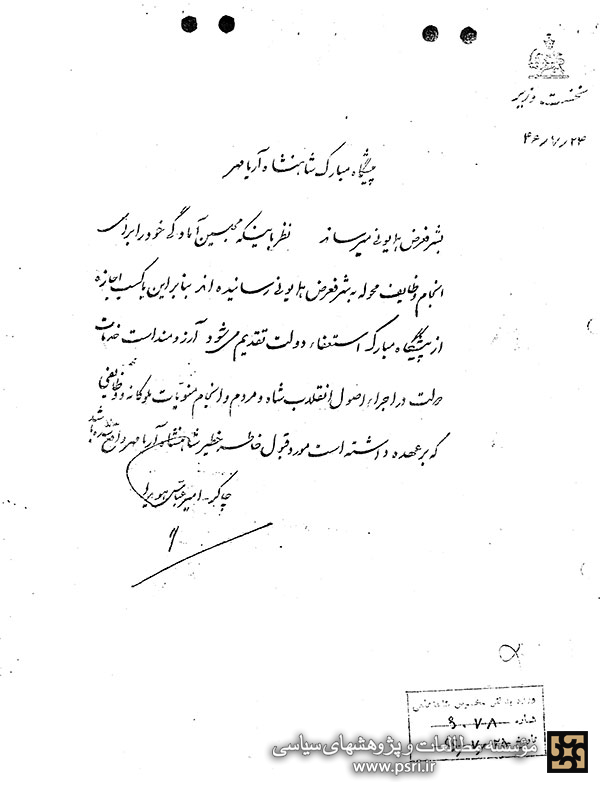 نخست وزیر
۴۶/۷/۲۳
پیشگاه مبارک شاهنشاه آریامهر
بشرفعرض همایونی میرساند نظر باینکه مجلسین آمادگی خود را برای
انجام وظایف محوله بشرفعرض همایونی رسانیده اند بنابراین با کسب اجازه
از پیشگاه مبارک استعفاء دولت تقدیم می شود آرزومند است خدمات
دولت در اجراء اصول انقلاب شاه و مردم و انجام منویات ملوکانه و وظایفی
که بر عهده داشته است مورد قبول خاطر خطیر شاهنشاه آریامهر واقع شده باشد
چاکر - امیرعباس هویدا
ورود به دفتر مخصوص شاهنشاهی
شماره ۶۰۷۸
موسسه مطالعات و پژوهشهای سیاسی
www.psri.ir